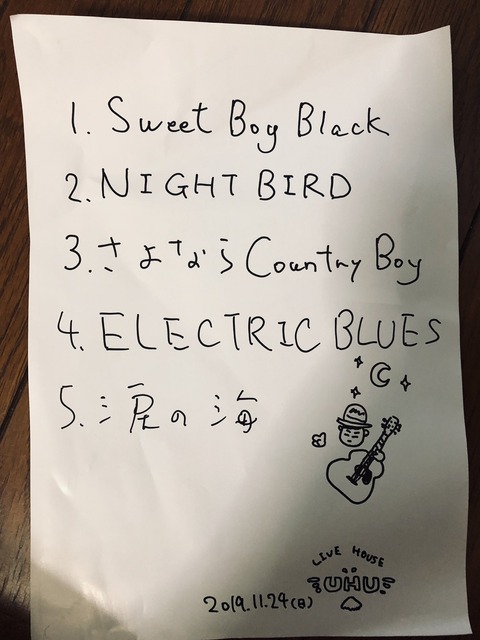 1. Sweet Boy Black
2. NIGHT BIRD
3. さよなら Country Boy
4. ELECTRIC BLUES
5. 涙の海
LIVE HOUSE
UHU
2019.11.24(日)